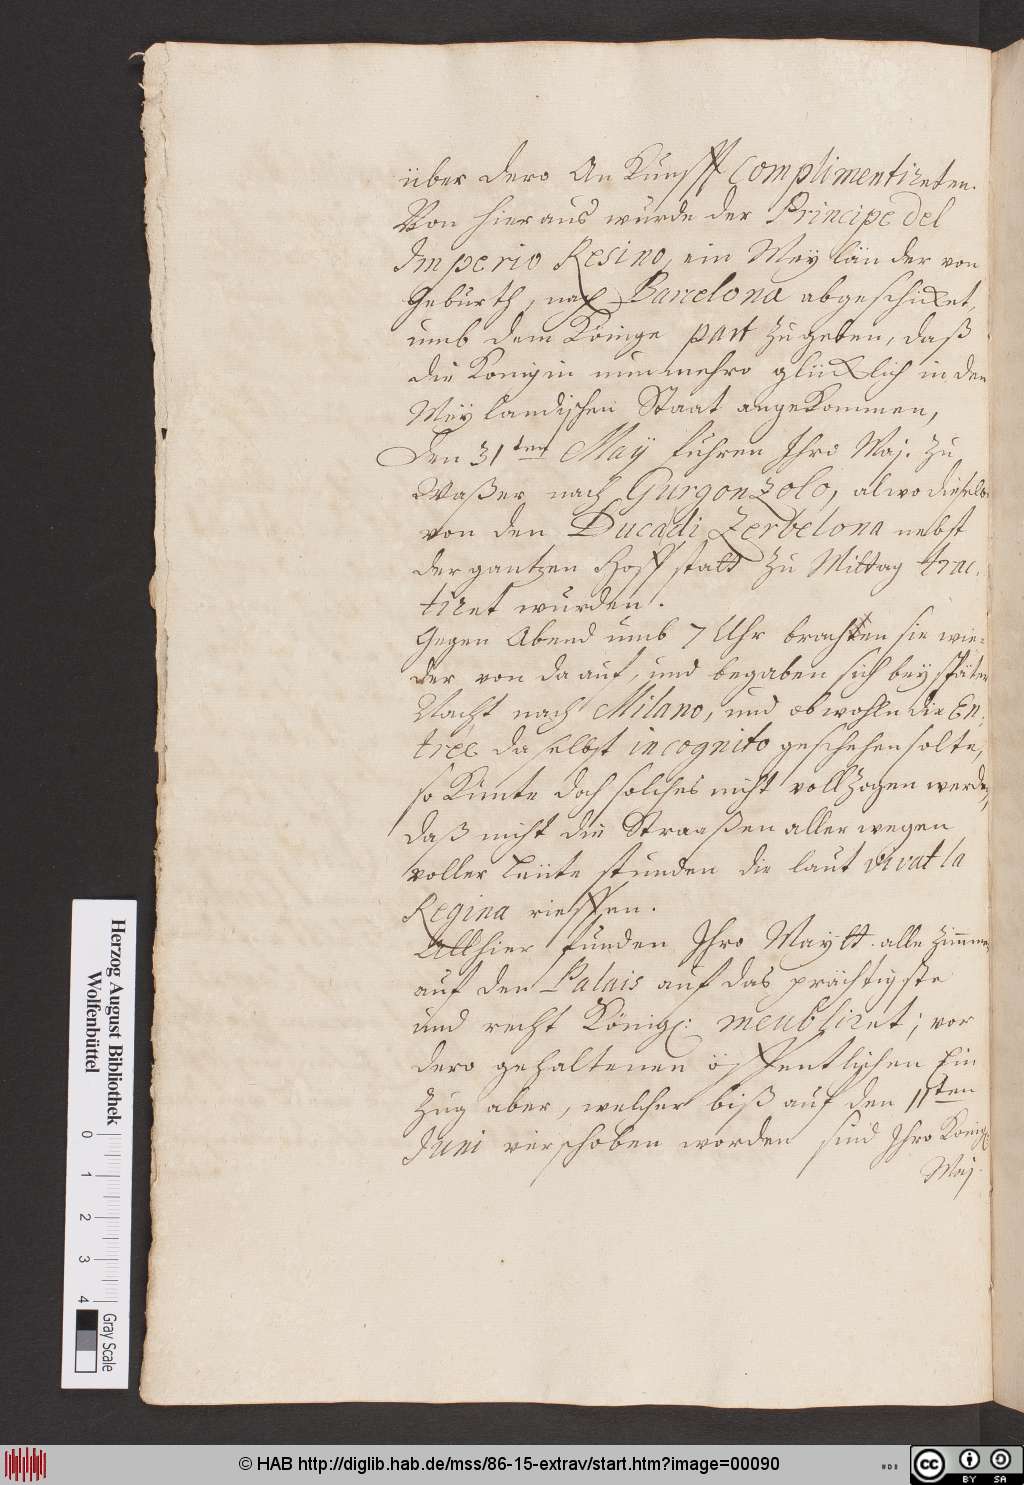 über dero An Kunfft complimentireten.
Von hier aus wurde der Principe del
Imperio Resino, ein Meÿländer von
Gebürth, nach Barcelona abgeschicket,
umb dem Könige part zu geben, daß
die Königin nunmehro glücklich in den
Meÿlandischen Staat angekommen,
Den 31ten Maÿ fuhren Ihro Maj. zu
Waßer nach Gurgonzolo, alwo dieselbe
von den Ducadi Zerbelona nebst
der gantzen Hoffstatt zu Mittag trac-
tiret wurden.
Gegen Abend umb 7 Uhr brachen sie wie-
der von da auf, und begaben sich beÿ später
Nacht nach Milano, und obwohln die En-
trée daselbst incognito geschehen solte,
so Kunte doch solches nicht vollzogen werden,
daß nicht die Straaßen allerwegen
voller Leüte stunden die laut vivat la
Regina rieffen.
Allhier funden Ihro Maÿtt. alle Zimmer
auf den Palais auf das prächtigste
und recht Königl: meubliret; vor
dero gehaltenen öffentlichen Ein
Zug aber, welcher biß auf den 11ten
Juni verschoben worden sind Ihro Königl.
Maj.
Herzog August Bibliothek
Wolfenbüttel
0 1 2 3 4
Gray Scale
© HAB http://diglib.hab.de/mss/86-15-extrav/start.htm?image=00090
cc BY SA